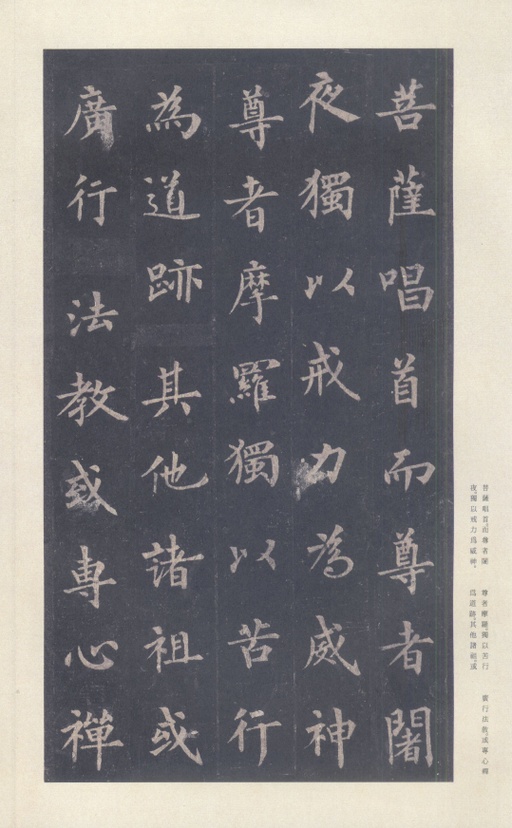 菩薩唱首而尊者闍
夜獨以戒力為威神
尊者摩羅獨以苦行
為道跡其他諸祖或
廣行法教或專心禪
菩薩唱首，而尊者闍
夜，獨以戒力爲威神，
尊者摩羅，獨以苦行
爲道跡，其他諸祖，或
廣行法教，或專心禪